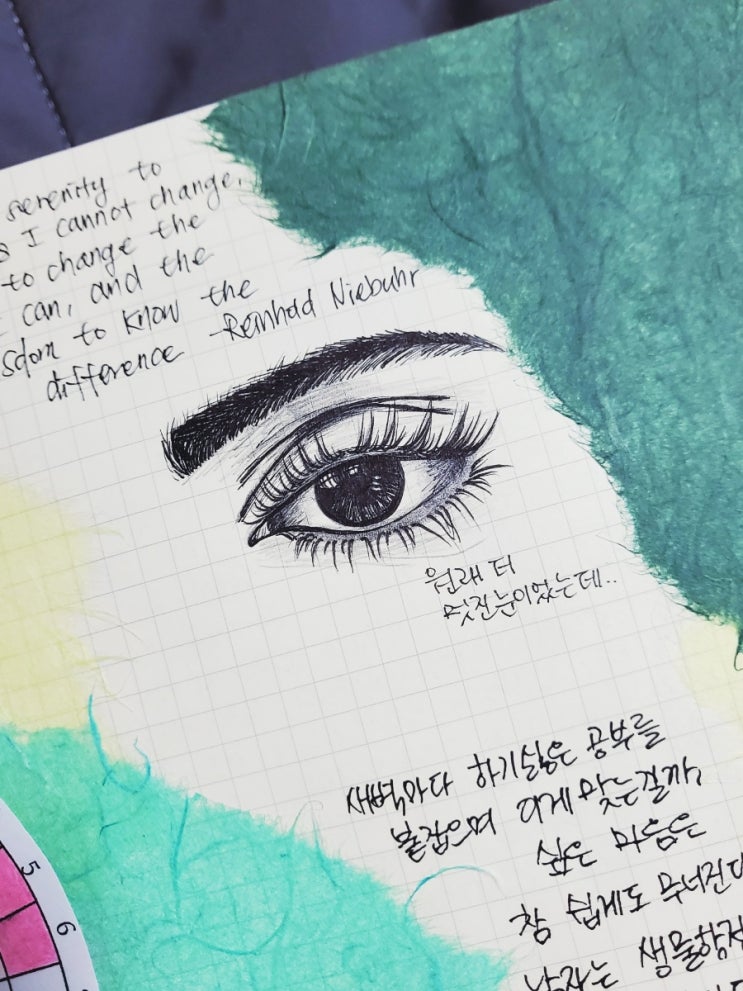 serenity to
I cannot change,
to change the
can, and the
sdom to know the
difference -Reinhold Niebuhr
원래 더
멋진눈이었는데..
새벽마다 하기싫은 공부를
붙잡으며 이게 맞는걸까,
싶은 마음은
참 쉽게도 무너진다
남자는 생물학적
5
6